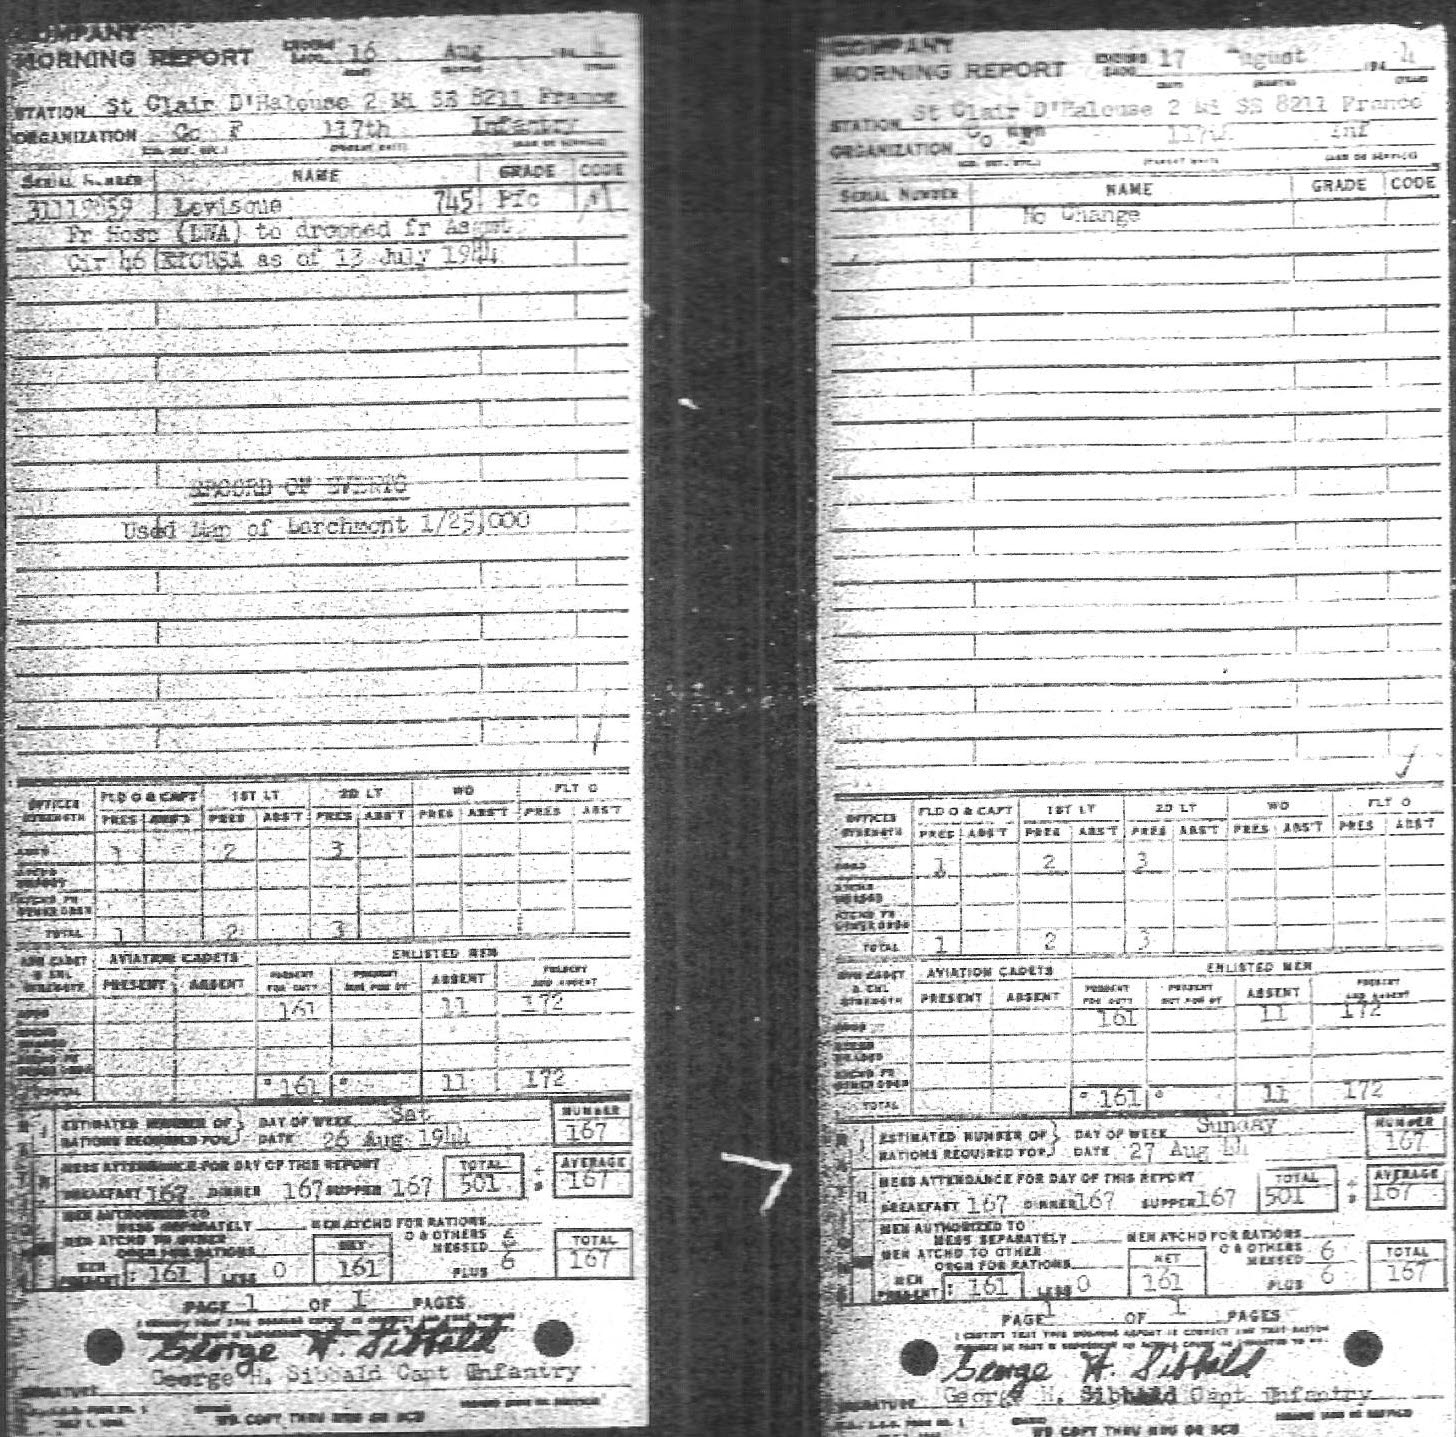 COMPANY
MORNING REPORT ENDING 2400 16 Aug 194 4
STATION St Clair D'Halouse 2 Mi SE 8211 France
ORGANIZATION Co F 117th Infantry
SERIAL NUMBER NAME GRADE CODE
Levisque 745 Pfc
Fr Hosp (LWA) to dropped fr Asgmt
Cir 46 ETOUSA as of 13 July 1944
RECORD OF EVENTS
Used Map of Larchmont 1/25,000
OFFICER STRENGTH FLD O & CAPT 1ST LT 2D LT WO FLT O
PRES ABS'T PRES ABS'T PRES ABS'T PRES ABS'T PRES ABS'T
1 2 3
TOTAL 1 2 3
AVIATION CADETS ENLISTED MEN
PRESENT ABSENT PRESENT FOR DUTY PRESENT NOT FOR DY ABSENT PRESENT AND ABSENT
161 11 172
TOTAL 161 11 172
ESTIMATED NUMBER OF RATIONS REQUIRED FOR DAY OF WEEK Sat NUMBER
DATE 26 Aug 1944 167
MESS ATTENDANCE FOR DAY OF THIS REPORT TOTAL ÷ AVERAGE
BREAKFAST 167 DINNER 167 SUPPER 167 501 3 167
MEN AUTHORIZED TO MESS SEPARATELY MEN ATCHD FOR RATIONS
MEN ATCHD TO OTHER ORGN FOR RATIONS O & OTHERS MESSED 6
MEN PRESENT 161 LESS 0 NET 161 PLUS 6 TOTAL 167
PAGE 1 OF 1 PAGES
George H. Sibbald
George H. Sibbald Capt Infantry
SIGNATURE
WD COPY THRU MRU OR SCU
COMPANY
MORNING REPORT ENDING 2400 17 August 194 4
STATION St Clair D'Halouse 2 Mi SE 8211 France
ORGANIZATION Co "F" 117th Inf
SERIAL NUMBER NAME GRADE CODE
No Change
OFFICER STRENGTH FLD O & CAPT 1ST LT 2D LT WO FLT O
PRES ABS'T PRES ABS'T PRES ABS'T PRES ABS'T PRES ABS'T
1 2 3
TOTAL 1 2 3
AVIATION CADETS ENLISTED MEN
PRESENT ABSENT PRESENT FOR DUTY PRESENT NOT FOR DY ABSENT PRESENT AND ABSENT
161 11 172
TOTAL 161 11 172
ESTIMATED NUMBER OF RATIONS REQUIRED FOR DAY OF WEEK Sunday NUMBER
DATE 27 Aug 44 167
MESS ATTENDANCE FOR DAY OF THIS REPORT TOTAL ÷ AVERAGE
BREAKFAST 167 DINNER 167 SUPPER 167 501 3 167
MEN AUTHORIZED TO MESS SEPARATELY MEN ATCHD FOR RATIONS
MEN ATCHD TO OTHER ORGN FOR RATIONS O & OTHERS MESSED 6
MEN PRESENT 161 LESS 0 NET 161 PLUS 6 TOTAL 167
PAGE 1 OF 1 PAGES
I CERTIFY THAT THIS MORNING REPORT IS CORRECT AND THAT RATION
George H. Sibbald
George H. Sibbald Capt Infantry
SIGNATURE
WD COPY THRU MRU OR SCU